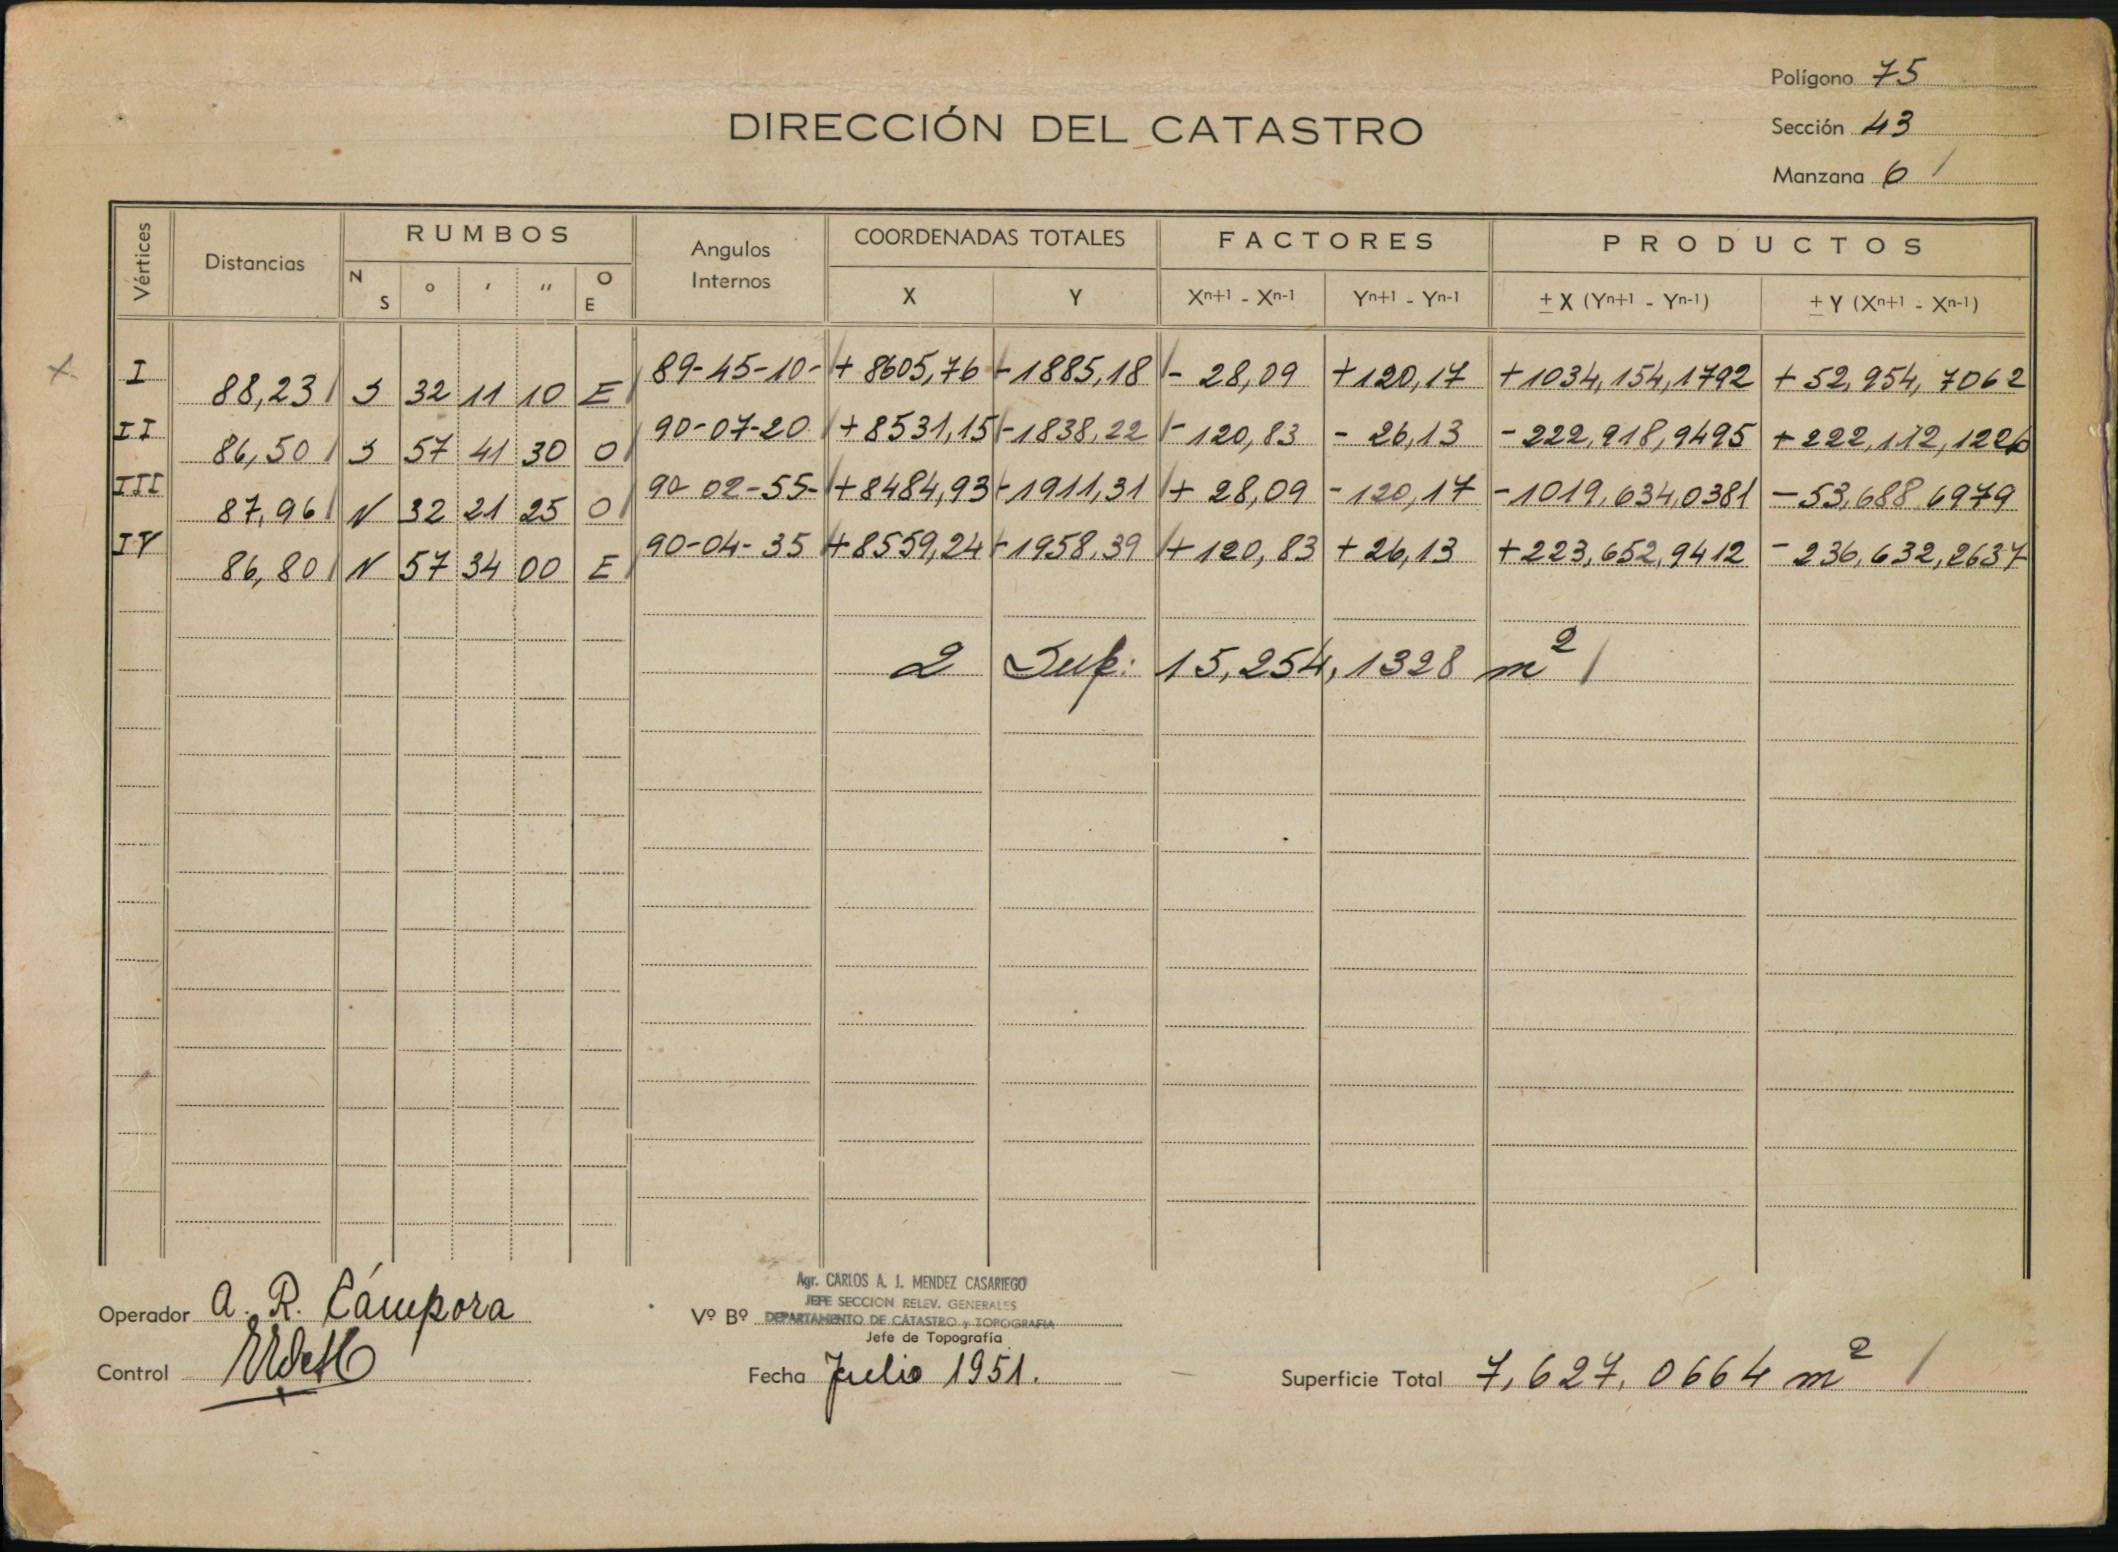 Polígono 75
DIRECCIÓN DEL CATASTRO
Sección 43
Manzana 6
Vértices
Distancias
RUMBOS
N S ° ' '' O E
Angulos Internos
COORDENADAS TOTALES
X Y
FACTORES
Xn+1 - Xn-1 Yn+1 - Yn-1
PRODUCTOS
± X (Yn+1 - Yn-1) ± Y (Xn+1 - Xn-1)
I 89-45-10- + 8605,76 - 1885,18 - 28,09 + 120,17 + 1034,154,1792 + 52,954,7062
88,23 S 32 11 10 E
II 90-07-20 + 8531,15 - 1838,22 - 120,83 - 26,13 - 222,918,9495 + 222,112,1226
86,50 S 57 41 30 O
III 90-02-55- + 8484,93 - 1911,31 + 28,09 - 120,17 - 1019,634,0381 - 53,688,6979
87,96 N 32 21 25 O
IV 90-04-35 + 8559,24 - 1958,39 + 120,83 + 26,13 + 223,652,9412 - 236,632,2637
86,80 N 57 34 00 E
2 Sup: 15,254,1328 m²
Operador A. R. Cámpora
Control
Vº Bº
Agr. CARLOS A. J. MENDEZ CASARIEGO
JEFE SECCION RELEV. GENERALES
DEPARTAMENTO DE CATASTRO y TOPOGRAFIA
Jefe de Topografía
Fecha Julio 1951.
Superficie Total 7,627,0664 m²